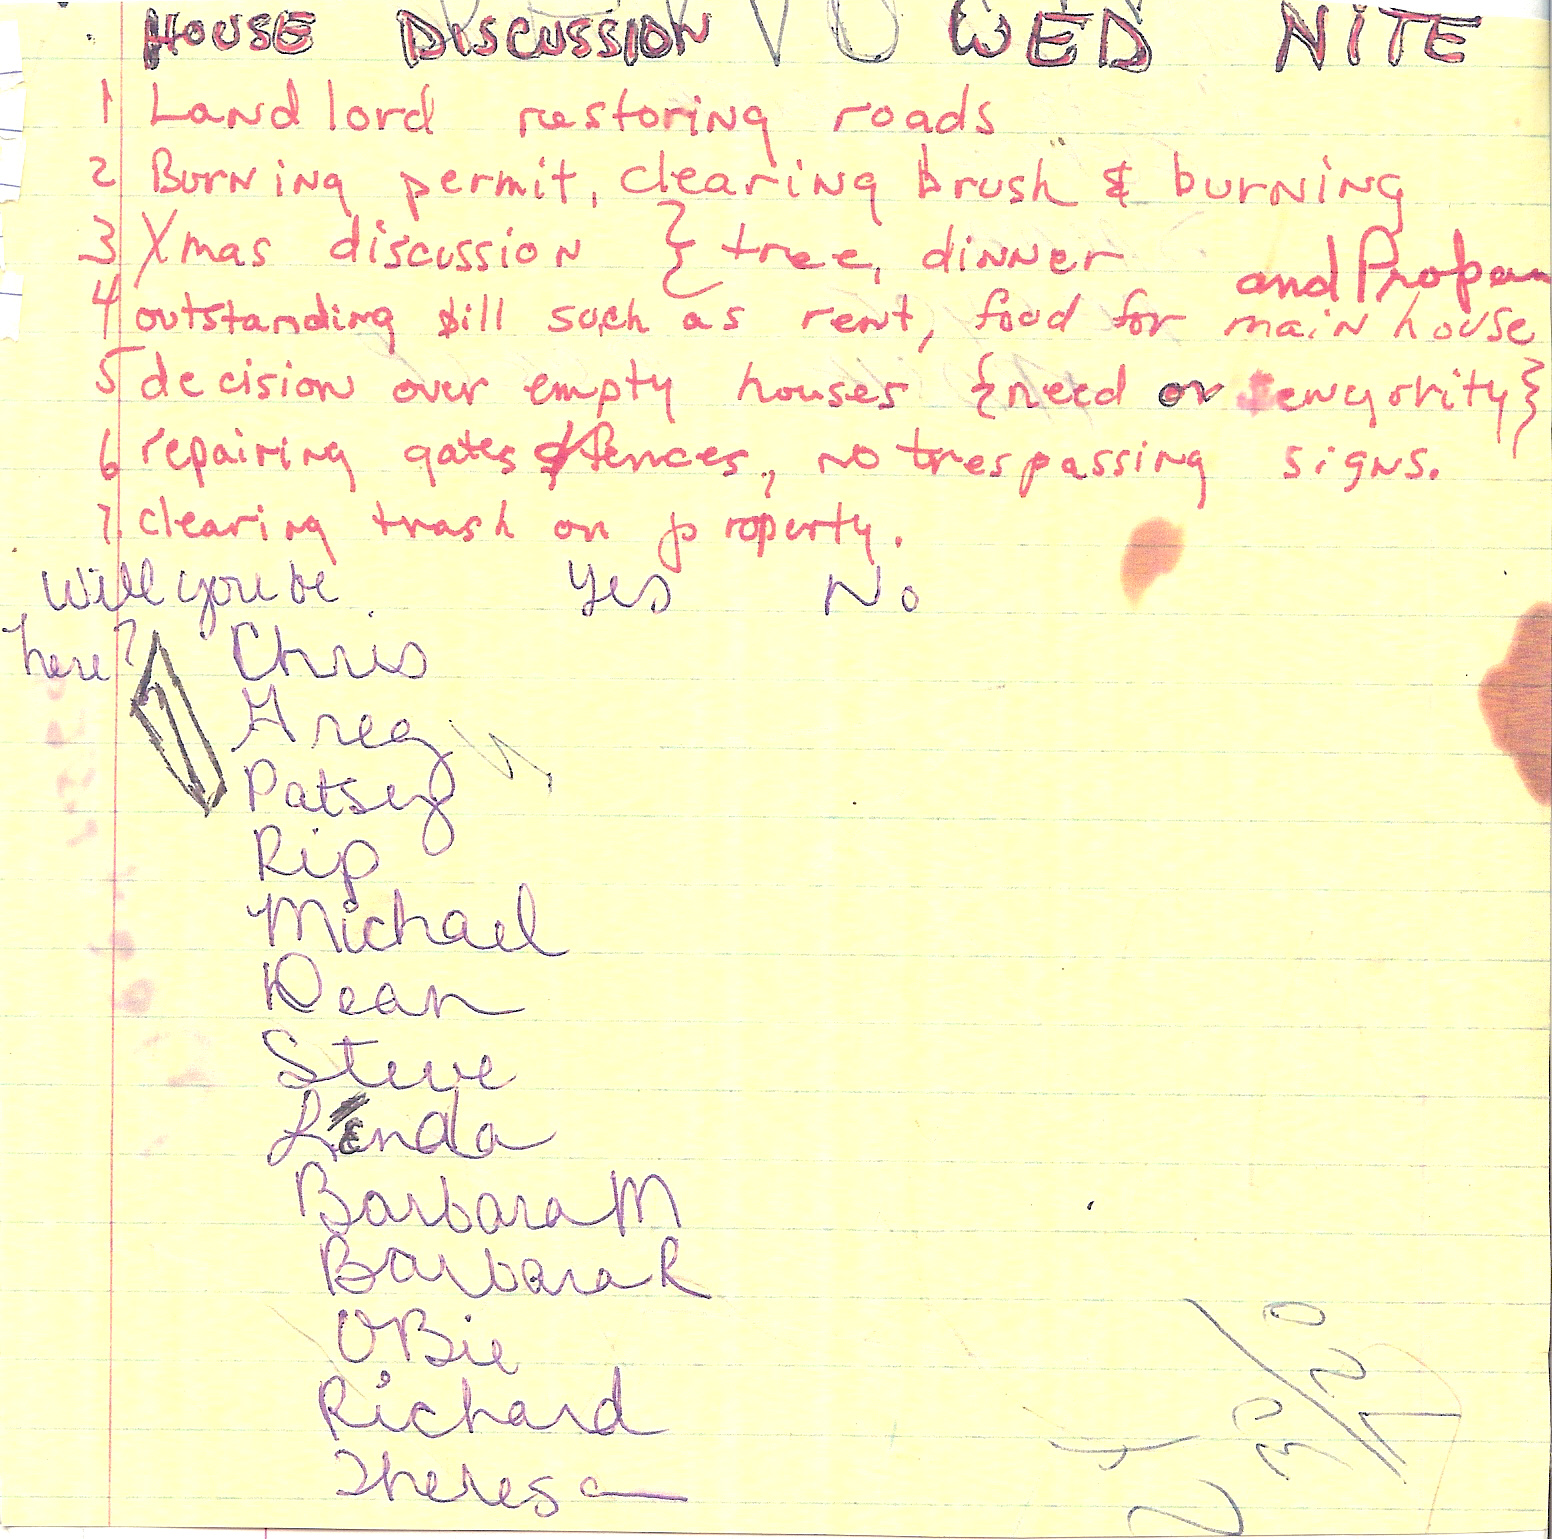 HOUSE DISCUSSION WED NITE
1 Landlord restoring roads
2 Burning permit, clearing brush & burning
3 Xmas discussion } tree, dinner
and Propan
4 outstanding bill such as rent, food for main house
5 decision over empty houses {need or senyority}
6 repairing gates & fences, no trespassing signs.
7. clearing trash on property.
Will you be Yes No
here?
Chris
Greg
Patsey
Rip
Michael
Dean
Steve
Linda
Barbara M
Barbara R
OBie
Richard
Theresa